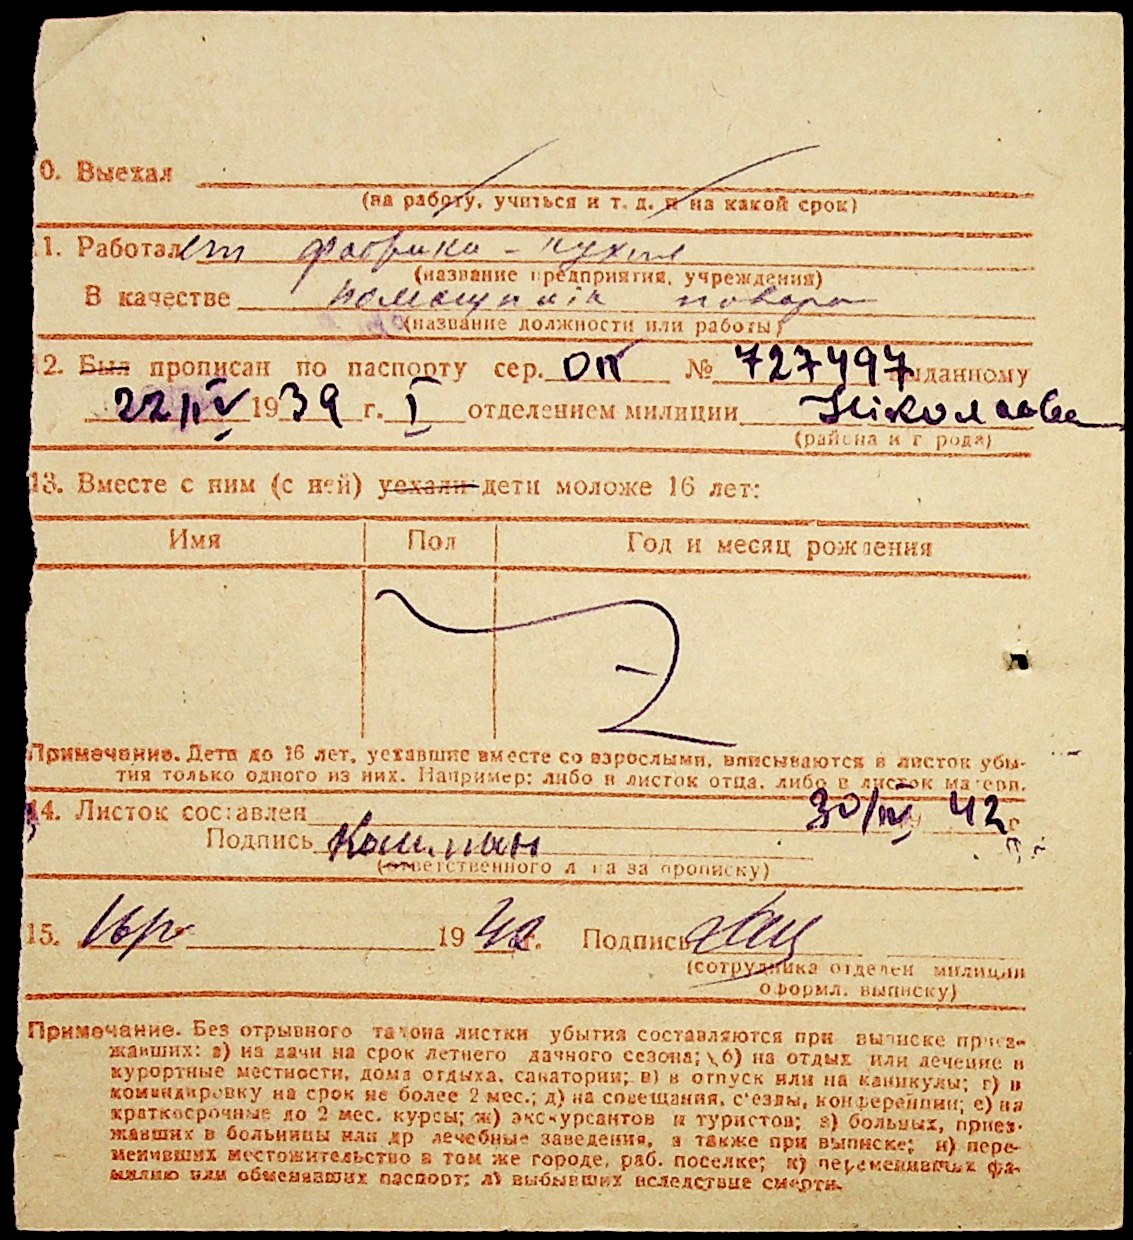 0. Выехал
(на работу, учиться и т. д. и на какой срок)
1. Работает фабрика-кухня
(название предприятия, учреждения)
В качестве помощник повара
(название должности или работы)
2. Был прописан по паспорту сер. ОП № 727497 выданному
22/IV 1939 г. I отделением милиции Николаева
(района и города)
13. Вместе с ним (с ней) уехали дети моложе 16 лет:
Имя Пол Год и месяц рождения
Примечание. Дети до 16 лет, уехавшие вместе со взрослыми, вписываются в листок убы-
тия только одного из них. Например: либо в листок отца, либо в листок матери.
14. Листок составлен 30/III 42 г
Подпись
(ответственного лица за прописку)
15. 1942 г. Подпись
(сотрудника отделен милиции
оформл. выписку)
Примечание. Без отрывного талона листки убытия составляются при выписке приез-
жавших: а) на дачи на срок летнего дачного сезона; б) на отдых или лечение в
курортные местности, дома отдыха, санатории; в) в отпуск или на каникулы; г) в
командировку на срок не более 2 мес.; д) на совещания, с'езды, конференции; е) на
краткосрочные до 2 мес. курсы; ж) экскурсантов и туристов; з) больных, приез-
жавших в больницы или др лечебные заведения, а также при выписке; и) пере-
менивших местожительство в том же городе, раб. поселке; к) переменивших фа-
милию или обменявших паспорт; л) выбывших вследствие смерти.